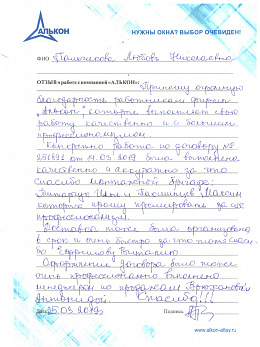 АЛЬКОН
НУЖНЫ ОКНА? ВЫБОР ОЧЕВИДЕН!
ФИО Любовь Николаевна
ОТЗЫВ о работе с компанией «АЛЬКОН»: Приношу огромную
благодарность работникам фирмы
"Алькон" которые выполняют свою
работу качественно и с большим
профессионализмом.
Конкретно работа по договору №
от 19.03.2019 была выполнена
качественно и аккуратно за что
спасибо монтажной бригаде:
и
которых прошу премировать за их
профессионализм.
Доставка тоже была организована
в срок и очень быстро за что тоже спасибо
Оформление договора было тоже
очень профессионально выполнено
менеджером по продажам
Спасибо!!!
Дата 25.03.2019г. Подпись
www.alkon-altay.ru